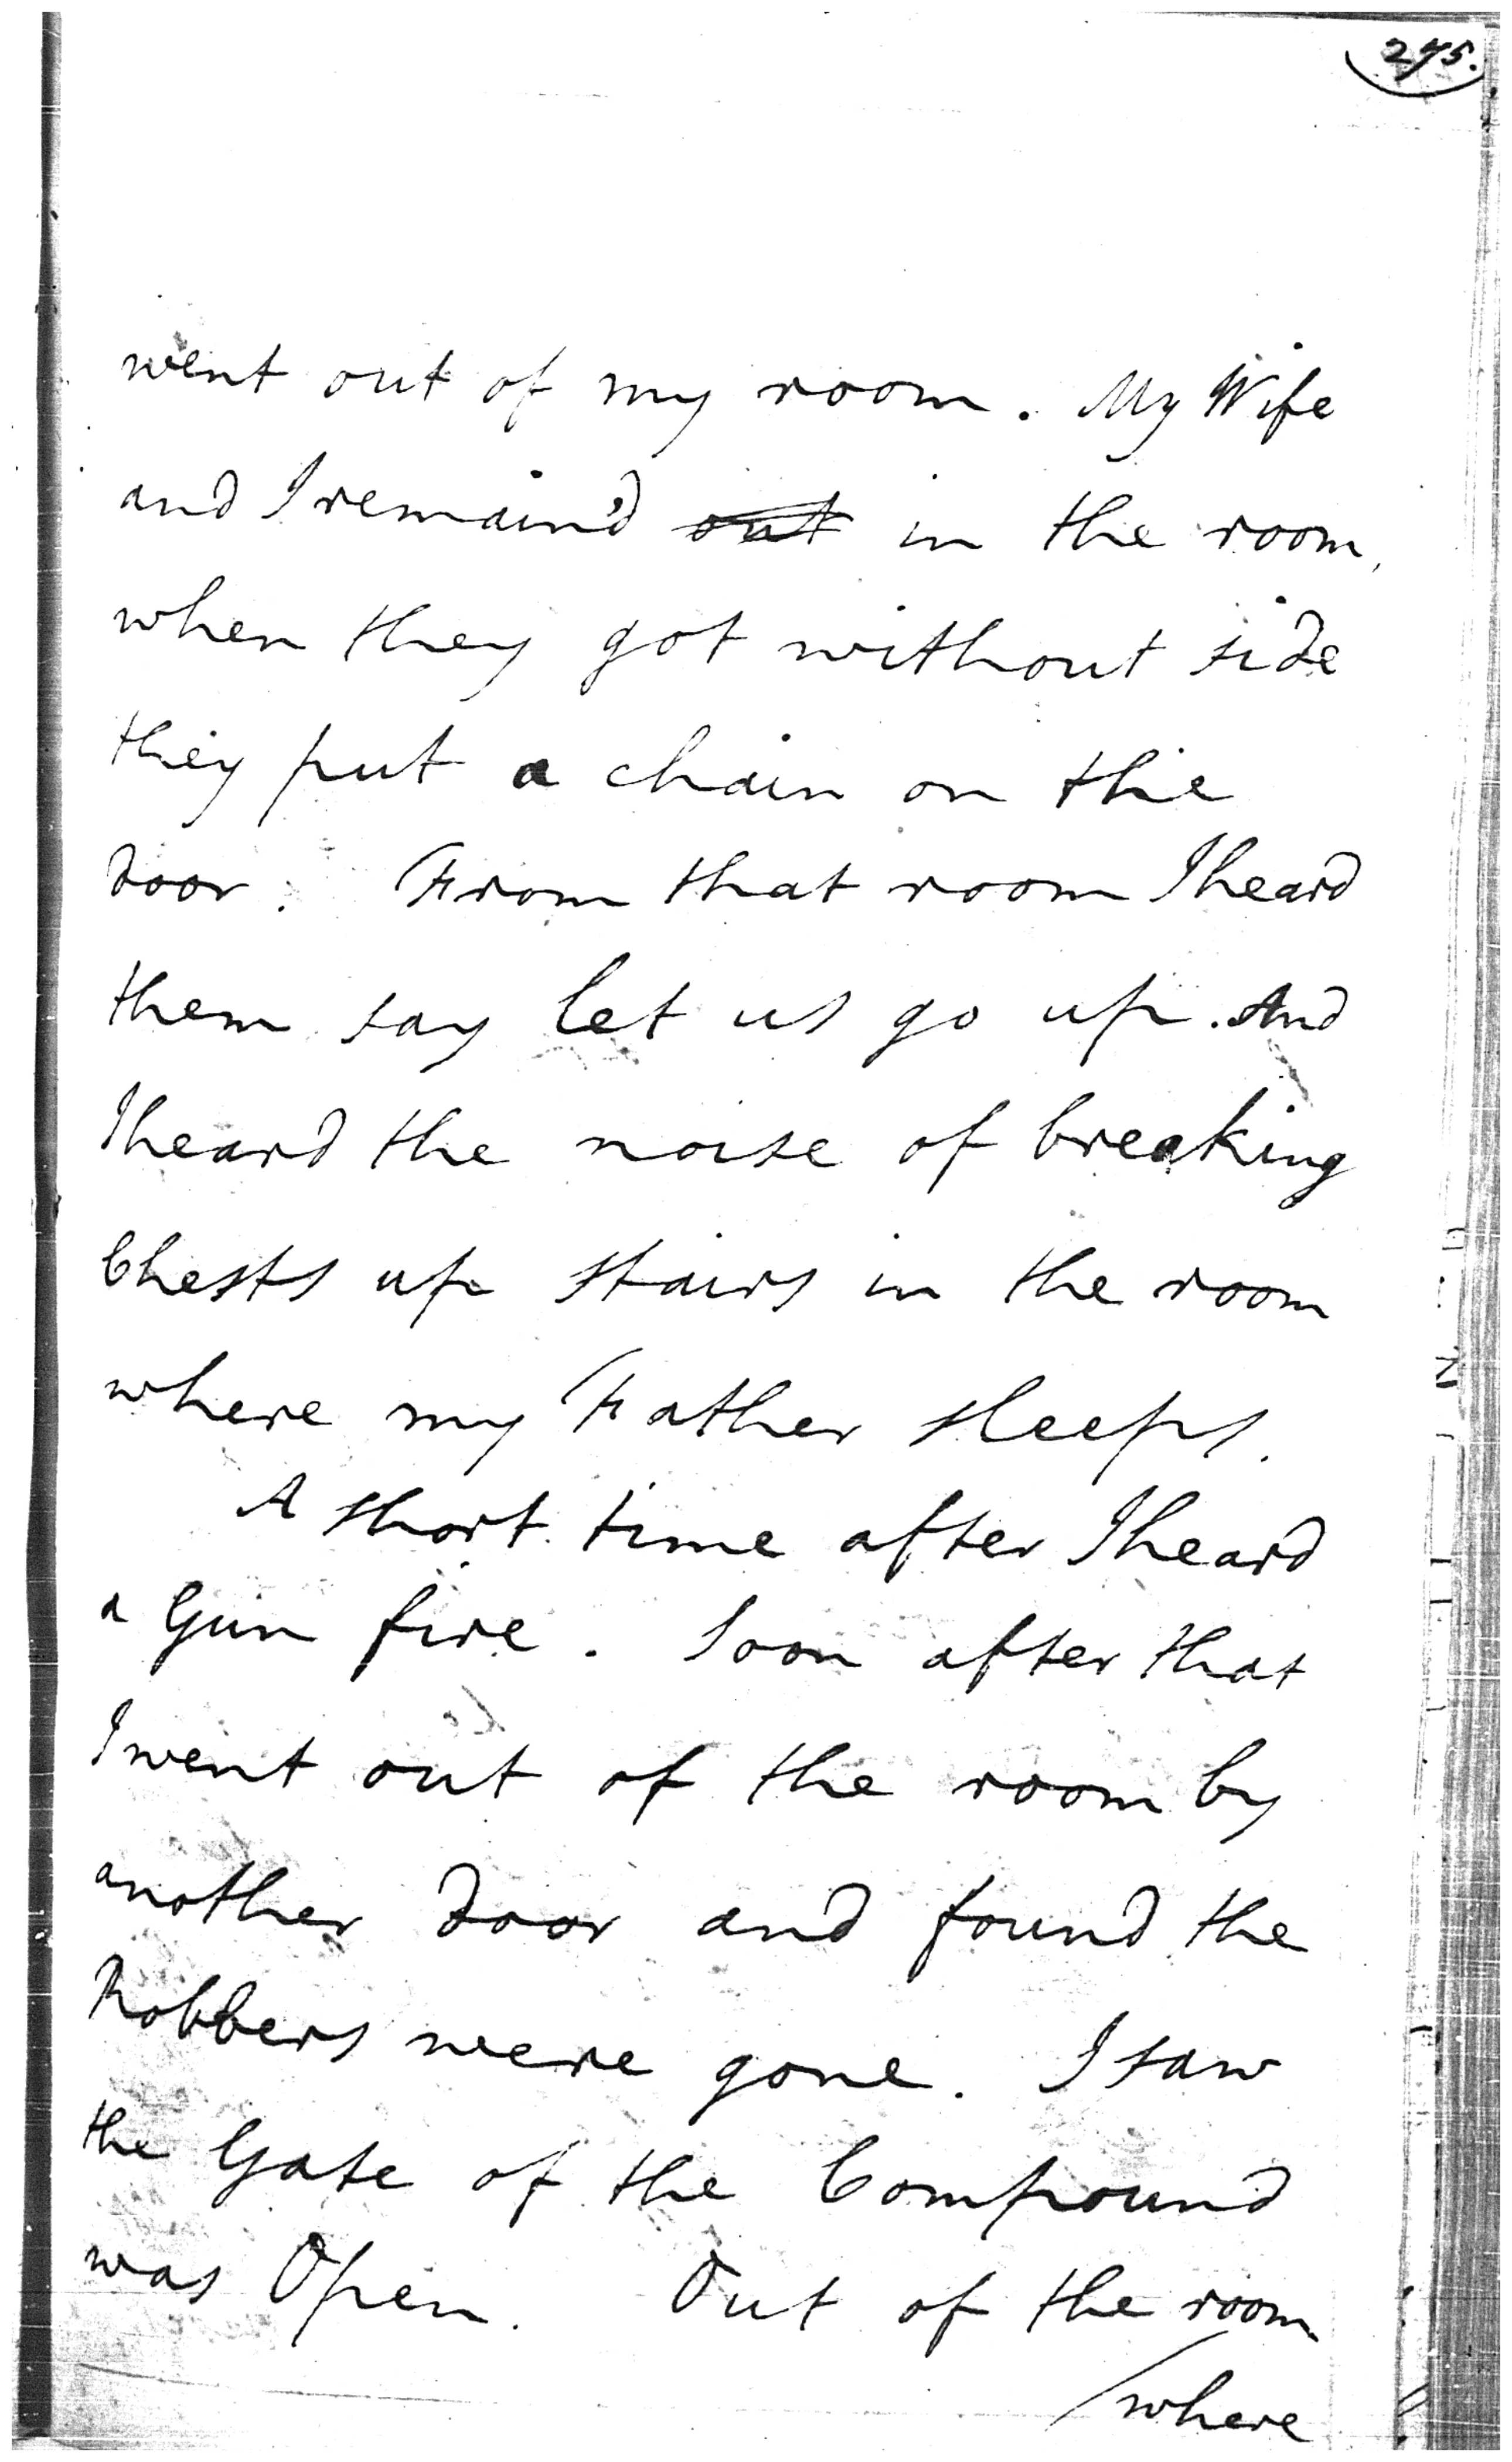 275.
went out of my room. My Wife
and I remain'd out in the room,
when they got without side
they put a chain on the
door. From that room I heard
them say let us go up. And
I heard the noise of breaking
Chests up stairs in the room
where my Father sleeps.
A short time after I heard
a Gun fire. Soon after that
I went out of the room by
another door and found the
Robbers were gone. I saw
the Gate of the Compound
was Open. Out of the room
where